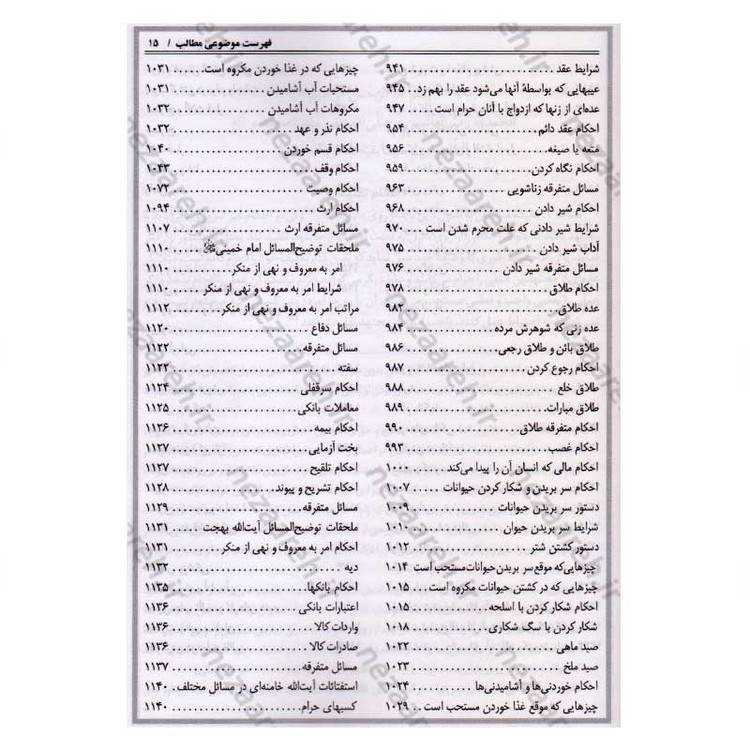 فهرست موضوعی مطالب / ۱۵
شرایط عقد ........ ۹۴۱
عیبهایی که بواسطهٔ آنها می‌شود عقد را بهم زد .. ۹۴۵
عده‌ای از زنها که ازدواج با آنان حرام است .... ۹۴۷
احکام عقد دائم ........ ۹۵۴
متعه یا صیغه ........ ۹۵۶
احکام نگاه کردن ........ ۹۵۹
مسائل متفرقه زناشویی ........ ۹۶۳
احکام شیر دادن ........ ۹۶۸
شرایط شیر دادنی که علت محرم شدن است ... ۹۷۰
آداب شیر دادن ........ ۹۷۵
مسائل متفرقه شیر دادن ........ ۹۷۶
احکام طلاق ........ ۹۷۸
عده طلاق ........ ۹۸۲
عده زنی که شوهرش مرده ........ ۹۸۴
طلاق بائن و طلاق رجعی ........ ۹۸۶
احکام رجوع کردن ........ ۹۸۷
طلاق خلع ........ ۹۸۸
طلاق مبارات ........ ۹۸۹
احکام متفرقه طلاق ........ ۹۹۰
احکام غصب ........ ۹۹۳
احکام مالی که انسان آن را پیدا می‌کند ...... ۱۰۰۰
احکام سر بریدن و شکار کردن حیوانات ..... ۱۰۰۷
دستور سر بریدن حیوانات ........ ۱۰۰۹
شرایط سر بریدن حیوان ........ ۱۰۱۰
دستور کشتن شتر ........ ۱۰۱۲
چیزهایی که موقع سر بریدن حیوانات مستحب است ۱۰۱۴
چیزهایی که در کشتن حیوانات مکروه است ... ۱۰۱۵
احکام شکار کردن با اسلحه ........ ۱۰۱۵
شکار کردن با سگ شکاری ........ ۱۰۱۸
صید ماهی ........ ۱۰۲۲
صید ملخ ........ ۱۰۲۳
احکام خوردنی‌ها و آشامیدنی‌ها ........ ۱۰۲۴
چیزهایی که موقع غذا خوردن مستحب است .. ۱۰۲۹
چیزهایی که در غذا خوردن مکروه است ...... ۱۰۳۱
مستحبات آب آشامیدن ........ ۱۰۳۱
مکروهات آب آشامیدن ........ ۱۰۳۲
احکام نذر و عهد ........ ۱۰۳۲
احکام قسم خوردن ........ ۱۰۴۰
احکام وقف ........ ۱۰۴۳
احکام وصیت ........ ۱۰۷۲
احکام ارث ........ ۱۰۹۴
مسائل متفرقه ارث ........ ۱۱۰۷
ملحقات توضیح‌المسائل امام خمینی ..... ۱۱۱۰
امر به معروف و نهی از منکر ........ ۱۱۱۰
شرایط امر به معروف و نهی از منکر ..... ۱۱۱۰
مراتب امر به معروف و نهی از منکر ....... ۱۱۱۲
مسائل دفاع ........ ۱۱۲۰
مسائل متفرقه ........ ۱۱۲۲
سفته ........ ۱۱۲۲
احکام سرقفلی ........ ۱۱۲۴
معاملات بانکی ........ ۱۱۲۵
احکام بیمه ........ ۱۱۲۶
بخت آزمایی ........ ۱۱۲۷
احکام تلقیح ........ ۱۱۲۷
احکام تشریح و پیوند ........ ۱۱۲۸
مسائل متفرقه ........ ۱۱۲۹
ملحقات توضیح‌المسائل آیت‌الله بهجت ..... ۱۱۳۱
احکام امر به معروف و نهی از منکر ........ ۱۱۳۱
دیه ........ ۱۱۳۲
احکام بانکها ........ ۱۱۳۵
اعتبارات بانکی ........ ۱۱۳۶
واردات کالا ........ ۱۱۳۶
صادرات کالا ........ ۱۱۳۶
مسائل متفرقه ........ ۱۱۳۷
استفتائات آیت‌الله خامنه‌ای در مسائل مختلف . ۱۱۴۰
کسبهای حرام ........ ۱۱۴۰
nezaareh.ir